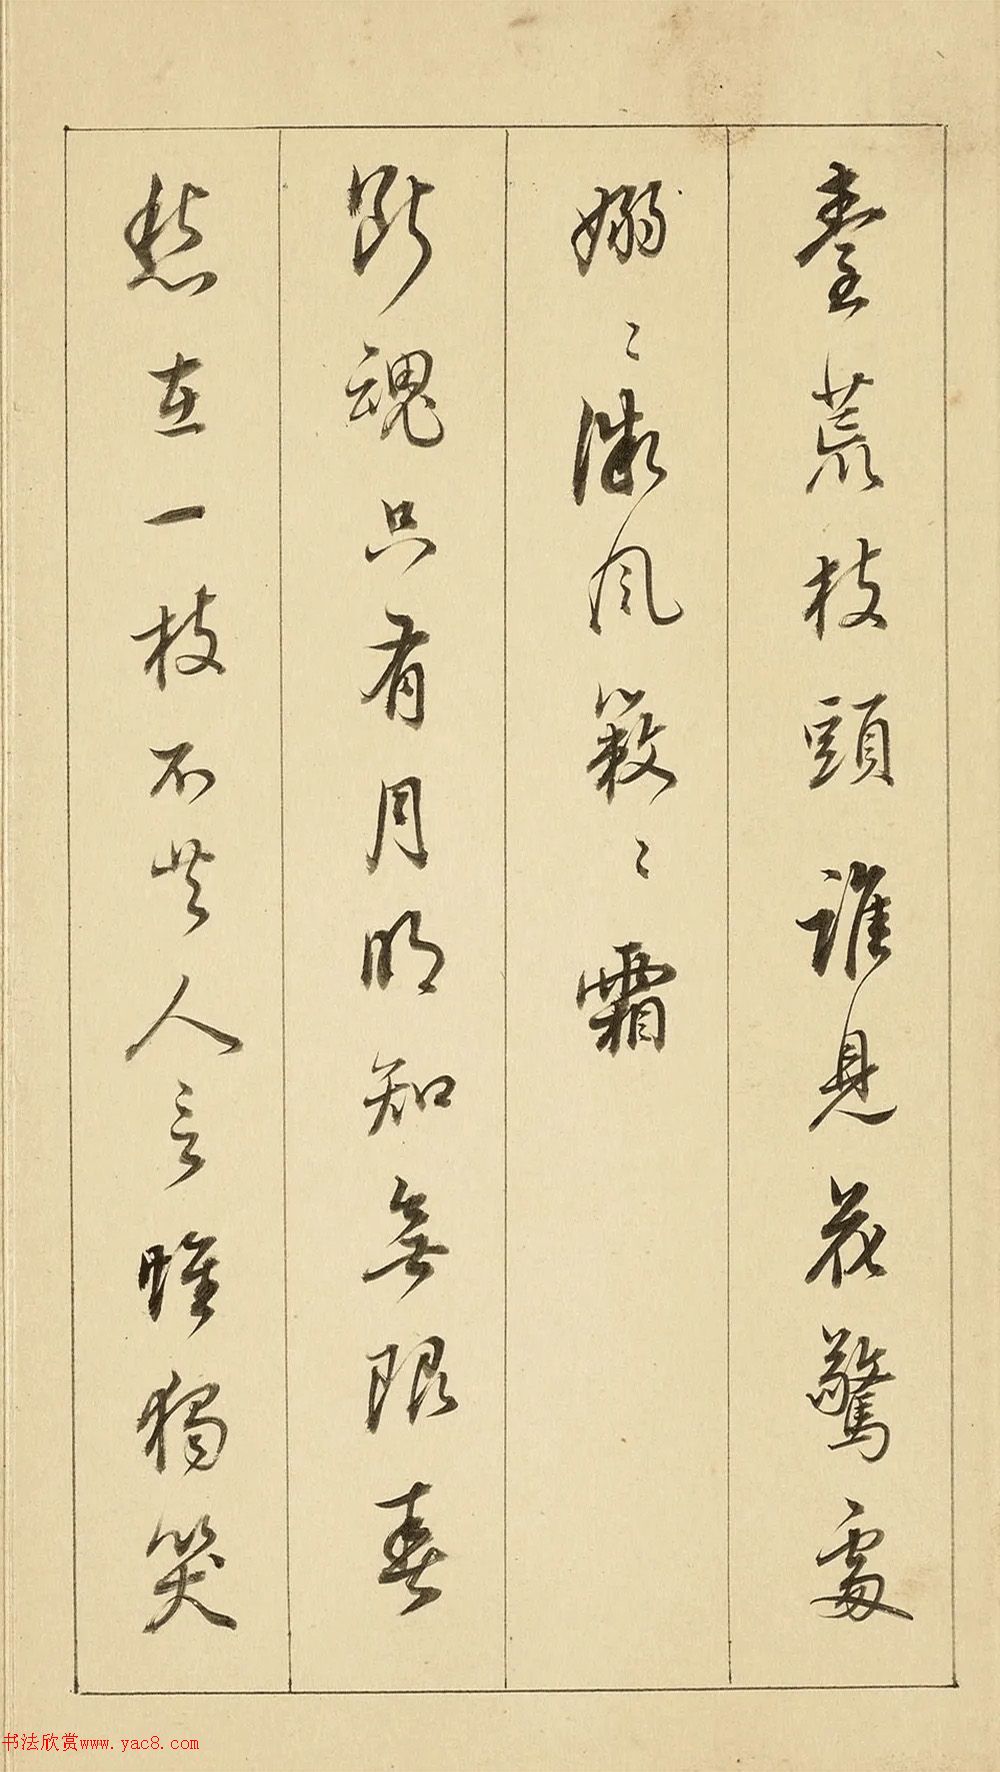 臺荒枝頭誰見花驚處
嫋〻微風簌〻霜
斷魂只有月明知無限春
愁在一枝不共人言唯獨笑
书法欣赏www.yac8.com